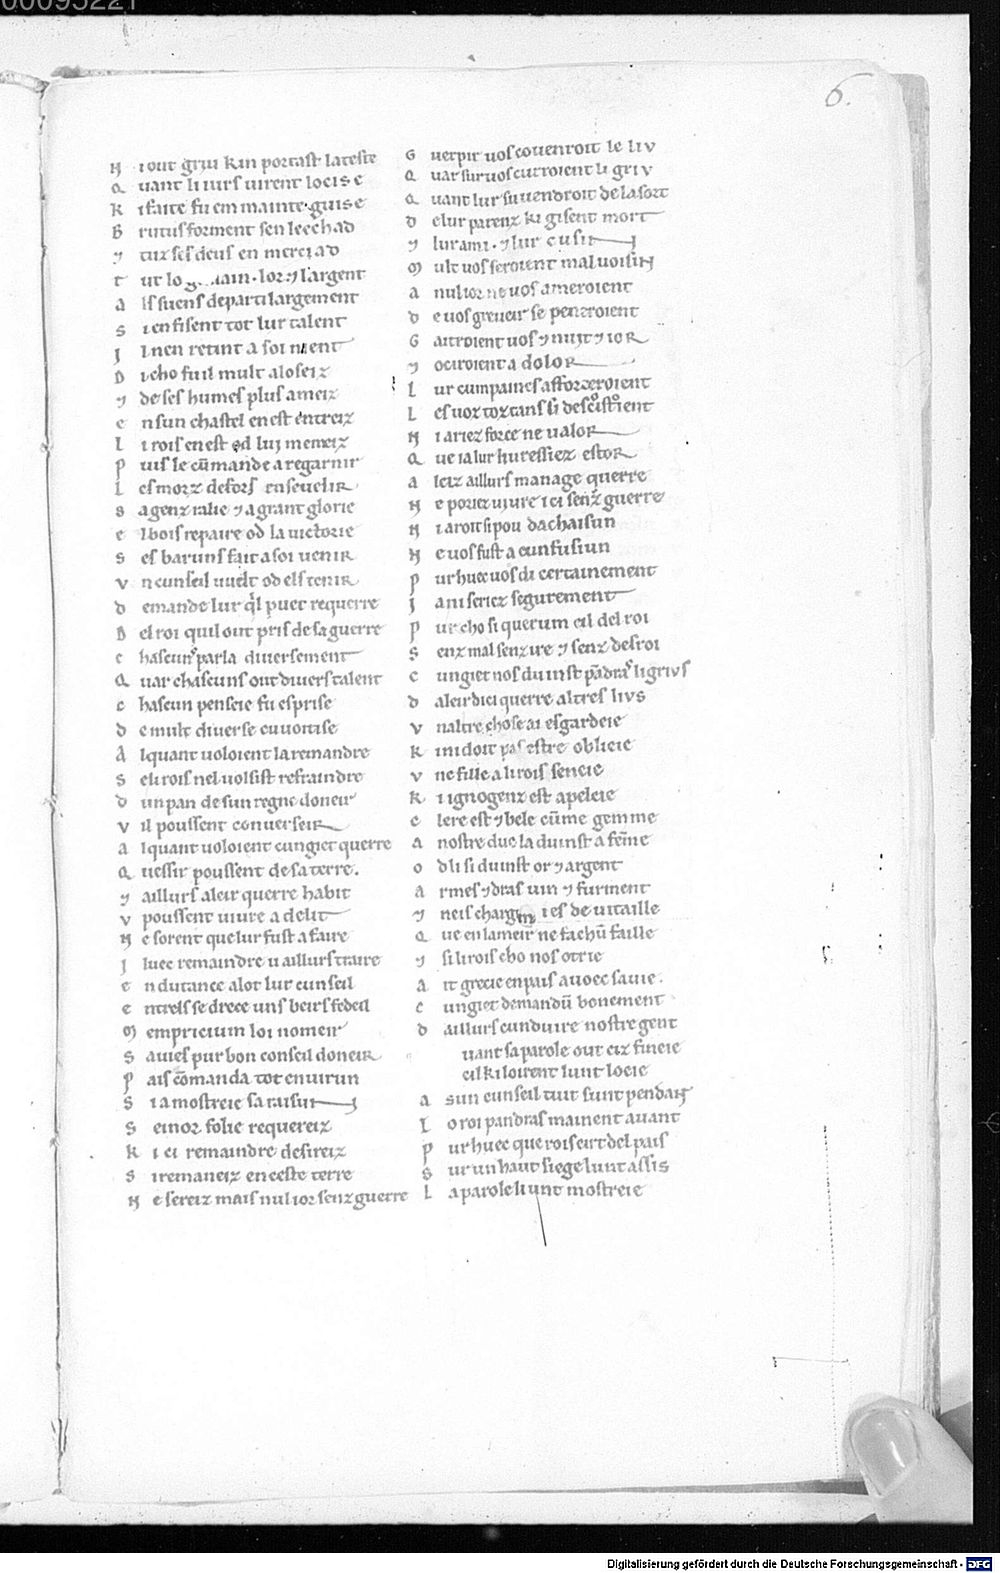 00095221
6.
N i out griu kin portast la teste
Q uant li iurs virent locise
K i faite fu em mainte guise
B rutus forment sen leechad
⁊ tuz ses deus en merciad
T ut lo lor ⁊ largent
A ls suens departi largement
S i en fisent tot lur talent
J l nen retint a soi nient
D i cho fu il mult aloseiz
⁊ de ses humes plus ameiz
E n sun chastel en est entreiz
L i rois en est od lui meneiz
P uis le cūmande a regarnir
L es morz defors enseuelir
S a genz ralie ⁊ a grant glorie
E l bois repaire od la uictorie
S es baruns fait a soi uenir
V n cunseil uuelt od els tenir
D emande lur q̄l puet requerre
D el roi quil out pris de sa guerre
C hascuns parla diuersement
Q uar chascuns out diuers talent
C hascun penseie fu esprise
D e mult diuerse cuuoitise
A lquant uoloient la remandre
S e li rois nel uolsist refraindre
D un pan de sun regne doneir
V il poussent conuerseir
A lquant uoloient cungiet querre
Q uessir poussent de sa terre.
⁊ aillurs aleir querre habit
V poussent uiure a delit
N e sorent que lur fust a faire
J luec remaindre u aillurs traire
E n dutance alot lur cunseil
E ntrels se drece uns beirs fedeil
M empricium loi nomeir
S auies pur bon conseil doneir
P ais cōmanda tot enuirun
S i a mostreie sa raisun
S einor folie requereiz
K i ci remaindre desireiz
S i remaneiz en ceste terre
N e sereiz mais nul ior senz guerre
G uerpir uos couenroit le liu
Q uar sur uos curroient li griu
Q uant lur suuendroit de la sort
D e lur parenz ki gisent mort
⁊ lur ami. ⁊ lur cusin
M ult uos seroient mal uoisin
A nul ior ne uos ameroient
D e uos greueir se peneroient
G aitroient uos ⁊ nuit ⁊ ior
⁊ ociroient a dolor
L ur cumpaines afforceroient
L es uoz toz tans si descistroient
N i ariez force ne ualor
Q ue ia lur huressiez estor
A leiz aillurs manage querre
N e poriez uiure ici senz guerre
N i aroit si pou dachaisun
N e uos fust a cunfusiun
P ur huec uos di certainement
J a ni seriez segurement
P ur cho si querum cil del roi
S enz mal senz ire ⁊ senz desroi
C ungiet nos duinst pādrasˀ li grius
D aleir dici querre altres lius
V n altre chose ai esgardeie
K i ni doit pas estre oblieie
V ne fille a li rois seneie
K i ignogenz est apeleie
C lere est ⁊ bele cūme gemme
A nostre duc la duinst a fēme
O d li si duinst or ⁊ argent
A rmes ⁊ dras uin ⁊ furment
⁊ neis de uitaille
Q ue en la meir ne fachū faille
⁊ si li rois cho nos otrie
A it grecie en pais auoec sa uie.
C ungiet demandū bonement
D aillurs cunduire nostre gent
uant sa parole out eiz fineie
cil ki loirent lunt loeie
A sun cunseil tuit sunt pendan
L o roi pandras mainent auant
P ur huec que rois eirt del pais
S ur un haut siege lunt assis
L a parole li unt mostreie
Digitalisierung gefördert durch die Deutsche Forschungsgemeinschaft - DFG